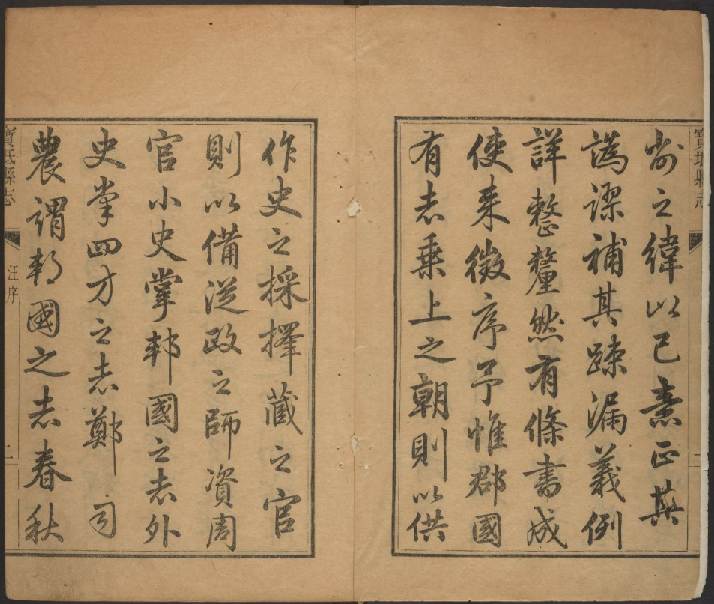 嵛之緯以已意正其
譌謬補其踈漏義例
詳整釐然有條書成
使来徵序予惟郡國
有志乗上之朝則以供
作史之採擇藏之官
則以備從政之師資周
官小史掌邦國之志外
史掌四方之志鄭司
農謂邦國之志春秋
寳坻縣志
汪序
二